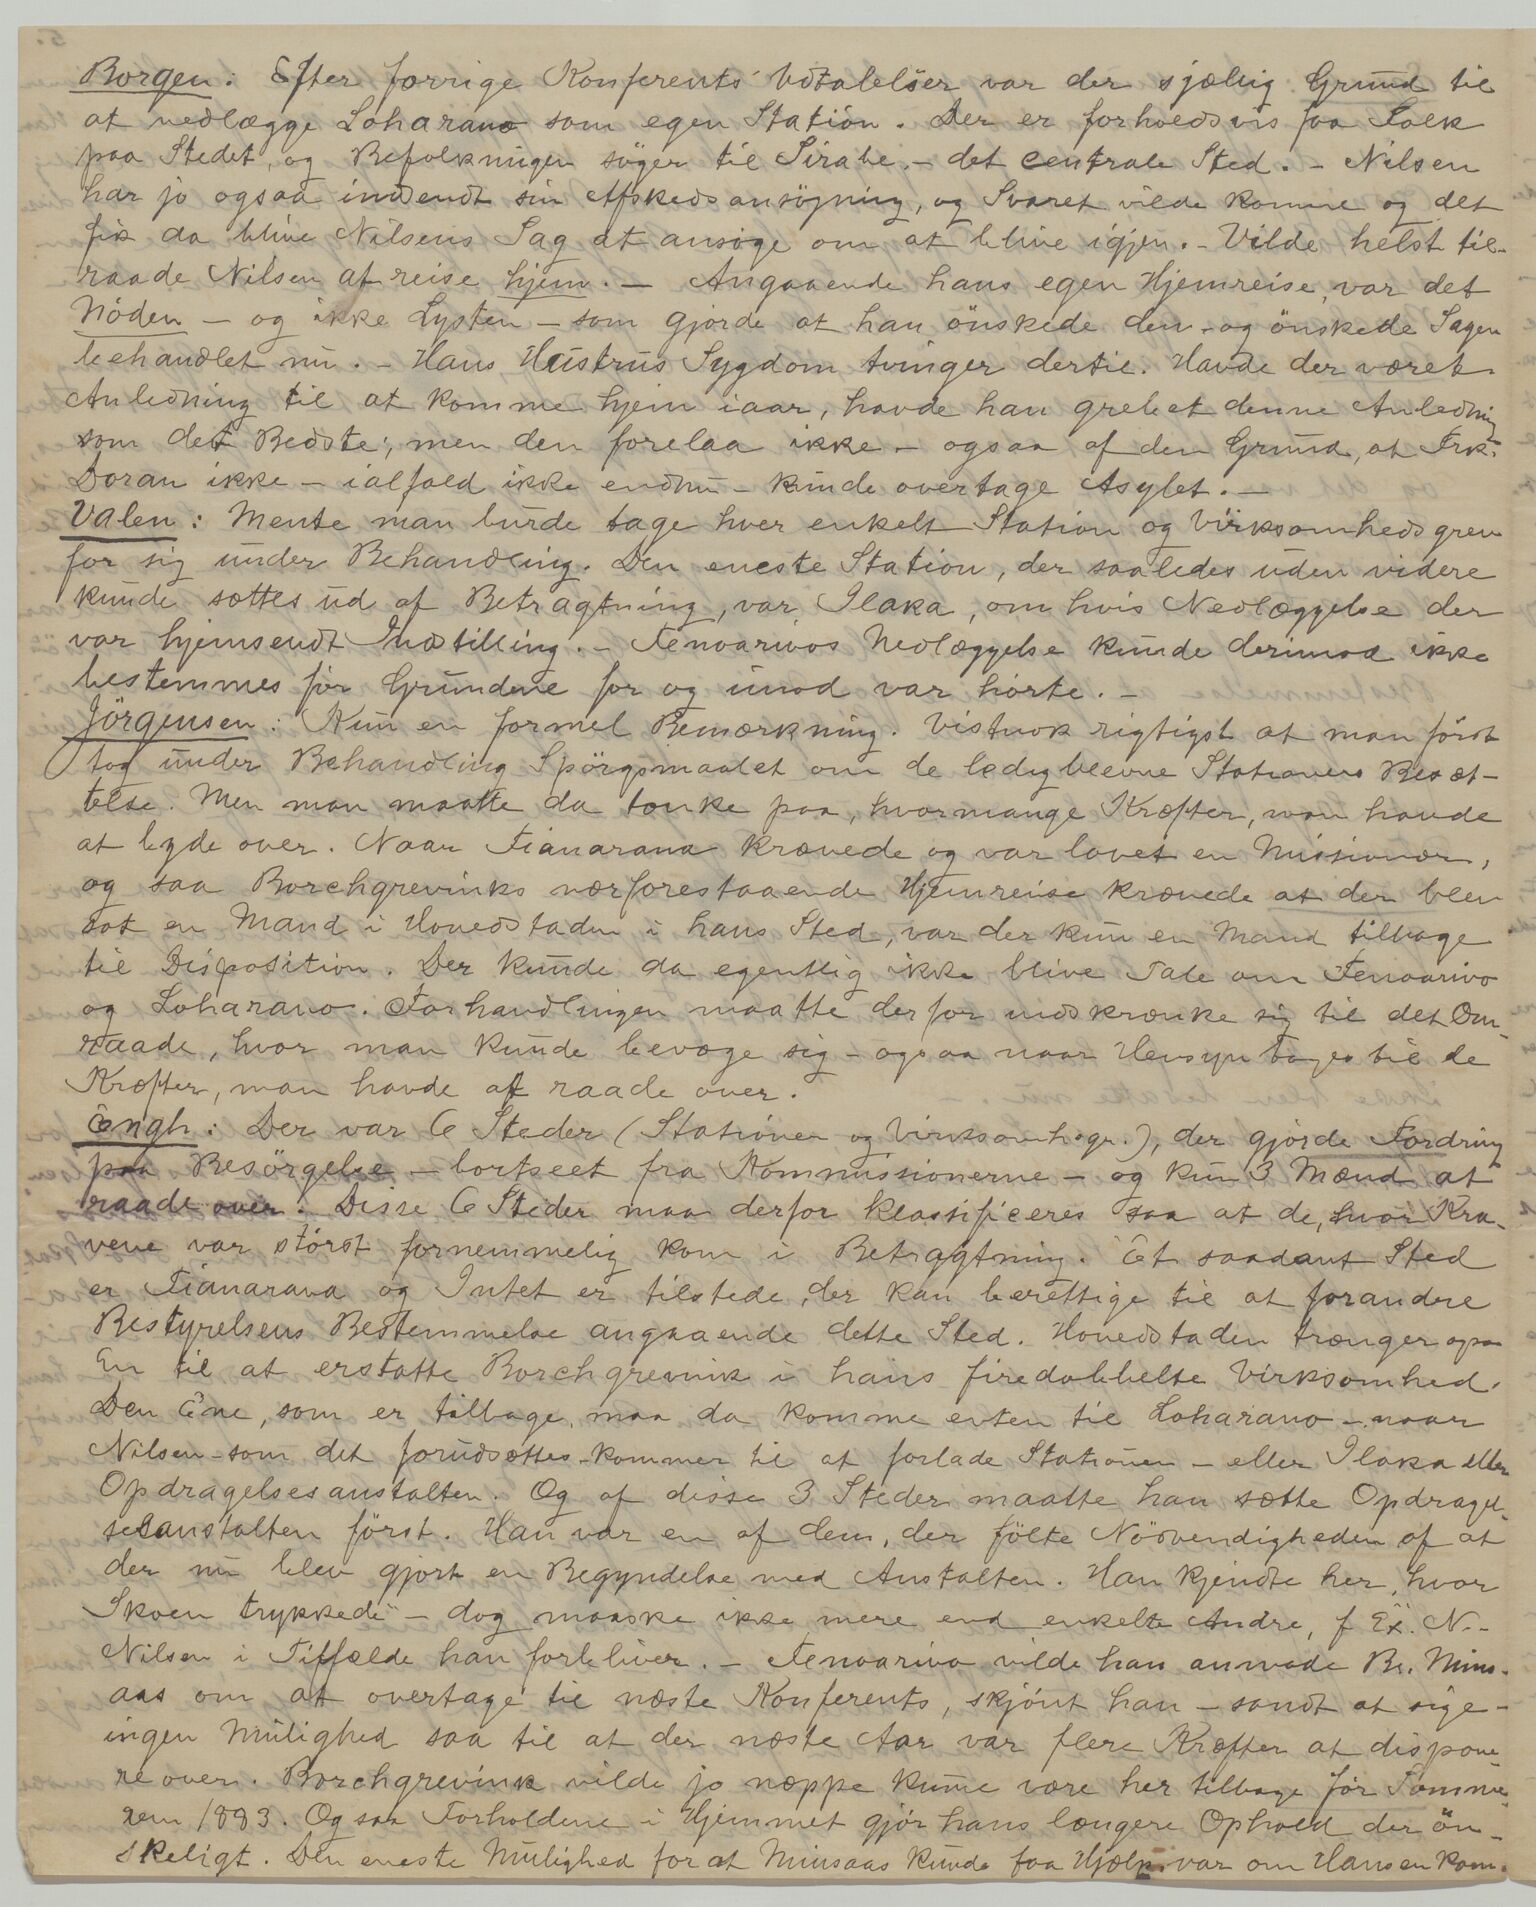 Borgen: Efter forrige Konferents' Udtalelser var der sjælig Grund til
at nedlægge Loharano som egen Station. Der er forholdsvis faa Folk
paa Stedet, og Befolkningen söger til Sirabe – det centrale Sted. – Nilsen
har jo ogsaa indsendt sin Afskedsansögning, og Svaret vilde komme og det
fik da blive Nilsens Sag at ansöge om at blive igjen. – Vilde helst til-
raade Nilsen at reise hjem. – Angaaende hans egen Hjemreise, var det
Nöden – og ikke Lysten – som gjorde at han önskede den – og önskede Sagen
behandlet nu. – Hans Hustrus Sygdom tvinger dertil. Havde der været
Anledning til at komme hjem iaar, havde han grebet denne Anledning
som det Bedste; men den forelaa ikke – ogsaa af den Grund, at Frk.
Doran ikke – ialfald ikke endnu – kunde overtage Asylet. –
Valen: Mente man burde tage hver enkelt Station og Virksomhedsgren
for sig under Behandling. Den eneste Station, der saaledes uden videre
kunde sættes ud af Betragtning, var Ilaka, om hvis Nedlæggelse der
var hjemsendt Indstilling. – Fenoarivos Nedlæggelse kunde derimod ikke
bestemmes för Grundene for og imod var hörte. –
Jörgensen: Kun en formel Bemærkning. Vistnok rigtigst at man först
tog under Behandling Spörgsmaalet om de ledigblevne Stationers Besæt-
telse. Men man maatte da tænke paa, hvormange Kræfter, man havde
at byde over. Naar Fianarana krævede og var lovet en Missionær,
og saa Borchgrevinks nærforestaaende Hjemreise krævede at der blev
sat en Mand i Hovedstaden i hans Sted, var der kun en Mand tilbage
til Disposition. Der kunde da egentlig ikke blive Tale om Fenoarivo
og Loharano. Forhandlingen maatte derfor indskrænke sig til det Om-
raade, hvor man kunde bevæge sig – ogsaa naar Hensyn toges til de
Kræfter, man havde at raade over.
Engh: Der var 6 Steder (Stationer og Virksomhsgr.), der gjorde Fordring
paa Besörgelse – bortseet fra Kommissionerne – og kun 3 Mænd at
raade over. Disse 6 Steder maa derfor klassificeres saa at de, hvor Kra-
vene var störst fornemmelig kom i Betragtning. Et saadant Sted
er Fianarana og Intet er tilstede, der kan berettige til at forandre
Bestyrelsens Bestemmelse angaaende dette Sted. Hovedstaden trænger ogsaa
En til at erstatte Borchgrevink i hans firedobbelte Virksomhed.
Den Ene, som er tilbage, maa da komme enten til Loharano – naar
Nilsen – som det forudsættes – kommer til at forlade Stationen – eller Ilaka eller
Opdragelsesanstalten. Og af disse 3 Steder maatte han sætte Opdragel-
sesanstalten först. Han var en af dem, der fölte Nödvendigheden af at
der nu blev gjort en Begyndelse med Anstalten. Han kjendte her, hvor
Skoen trykkede" – dog maaske ikke mere end enkelte Andre, f. Ex. N.
Nilsen i Tilfælde han forbliver. – Fenoarivo vilde han anmode Br. Mins-
aas om at overtage til næste Konferents, skjönt han – sandt at sige –
ingen Mulighed saa til at der næste Aar var flere Kræfter at dispone-
re over. Borchgrevink vilde jo næppe kunne være her tilbage för Somme-
ren 1883. Og saa Forholdene i Hjemmet gjör hans længere Ophold der ön-
skeligt. Den eneste Mulighed for at Minsaas kunde faa Hjælp var om Hansen kom-